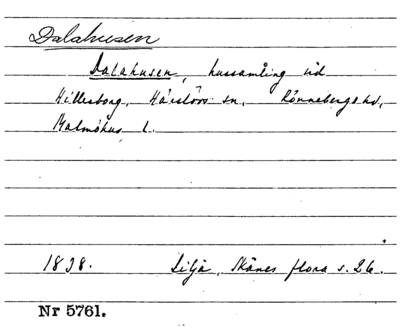 Dalahusen
Dalahusen, hussamling vid
Hilleshög, Härslövs sn, Rönnebergs hd,
Malmöhus l.
1838. Lilja, Skånes flora s. 26.
Nr 5761.